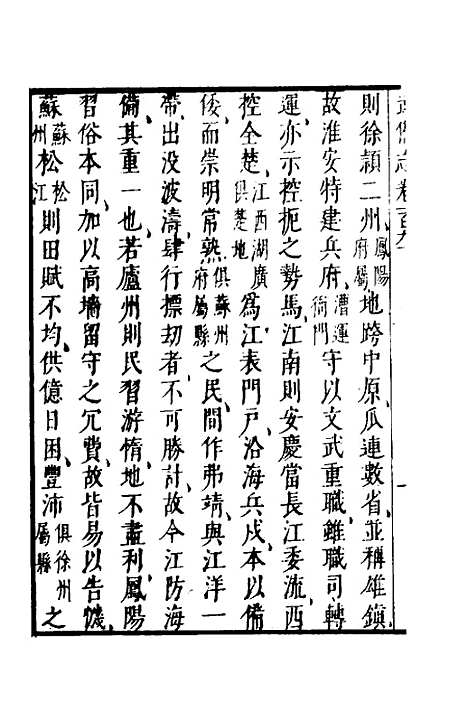 武備志卷二百九 一
則徐潁二州鳳陽府屬地跨中原瓜連數省並稱雄鎮
故淮安特建兵府漕運衙門守以文武重職雖職司轉
運亦示控扼之勢焉江南則安慶當長江委流西
控全楚江西湖廣俱楚地爲江表門戶沿海兵戍本以備
倭而崇明常熟俱蘇州府屬縣之民間作弗靖與江洋一
帶出沒波濤肆行摽劫者不可勝計故今江防海
備其重一也若廬州則民習游惰地不盡利鳳陽
習俗本同加以高墻留守之冗費故皆易以告饑
蘇蘇州松松江則田賦不均供億日困豐沛俱徐州屬縣之